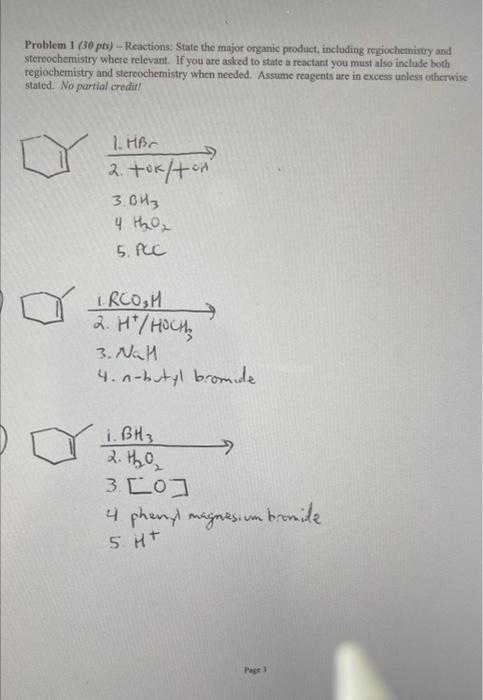 Problem 1 (30 pts) – Reactions: State the major organic product, including regiochemistry and
stereochemistry where relevant. If you are asked to state a reactant you must also include both
regiochemistry and stereochemistry when needed. Assume reagents are in excess unless otherwise
stated. No partial credit!
1. HBr
2. +OK/+OH
3. BH3
4 H2O2
5. PCC
1. RCO3H
2. H+/HOCH3
3. NaH
4. n-butyl bromide
1. BH3
2. H2O2
3. [O]
4 phenyl magnesium bromide
5. H+
Page 3